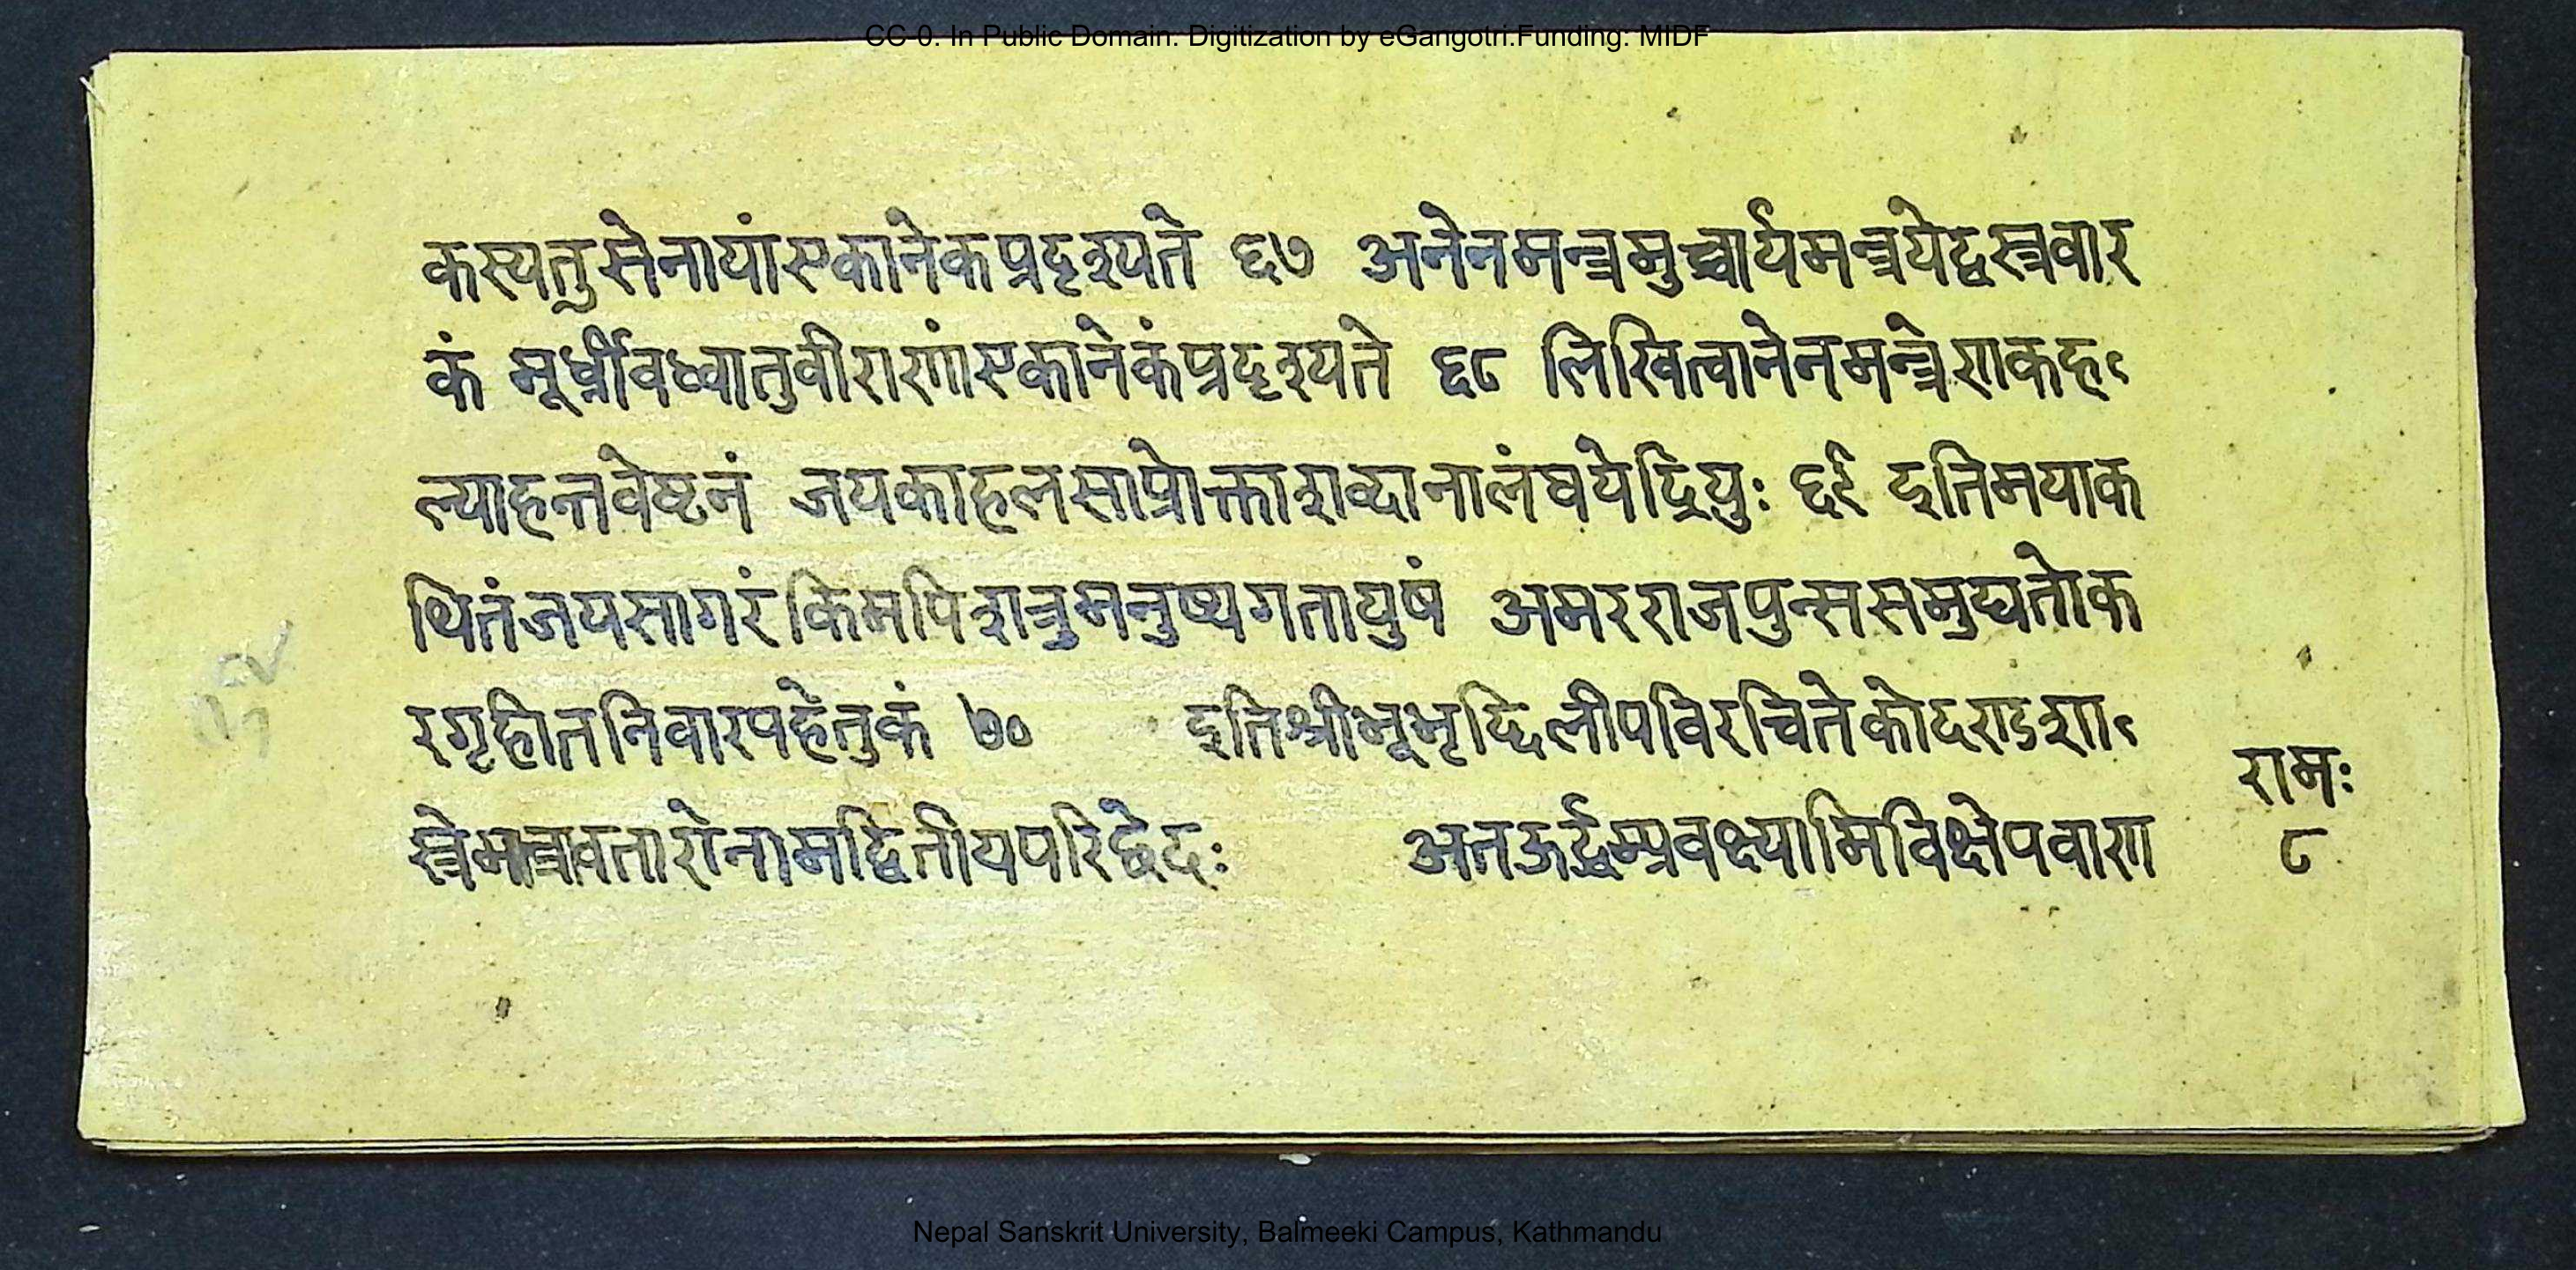 CC-0. In Public Domain. Digitization by eGangotri.Funding: MIDF
कस्यतुसेनायांएकानेकप्रदृश्यते ६७ अनेनमन्त्रमुच्चार्यमन्त्रयेद्वस्त्रवार
कं मूर्ध्नीवध्वातुवीराणांएकानेकंप्रदृश्यते ६८ लिखित्वानेनमन्त्रेणकह
ल्याहन्तवेष्टनं जयकाहलसाप्रोक्ताशब्दानालंघयेद्रिपुः ६९ इतिमयाक
थितंजयसागरंकिमपिशत्रुमनुष्यगतायुषं अमरराजपुन्ससमुद्यतोक
रगृहीतनिवारपहेतुकं ७० इतिश्रीभूभृद्दिलीपविरचितेकोदराडशा
स्त्रेमन्त्रावतारोनामद्वितीयपरिछेदः अतऊर्द्धम्प्रवक्ष्यामिविक्षेपवाण
रामः
८
Nepal Sanskrit University, Balmeeki Campus, Kathmandu